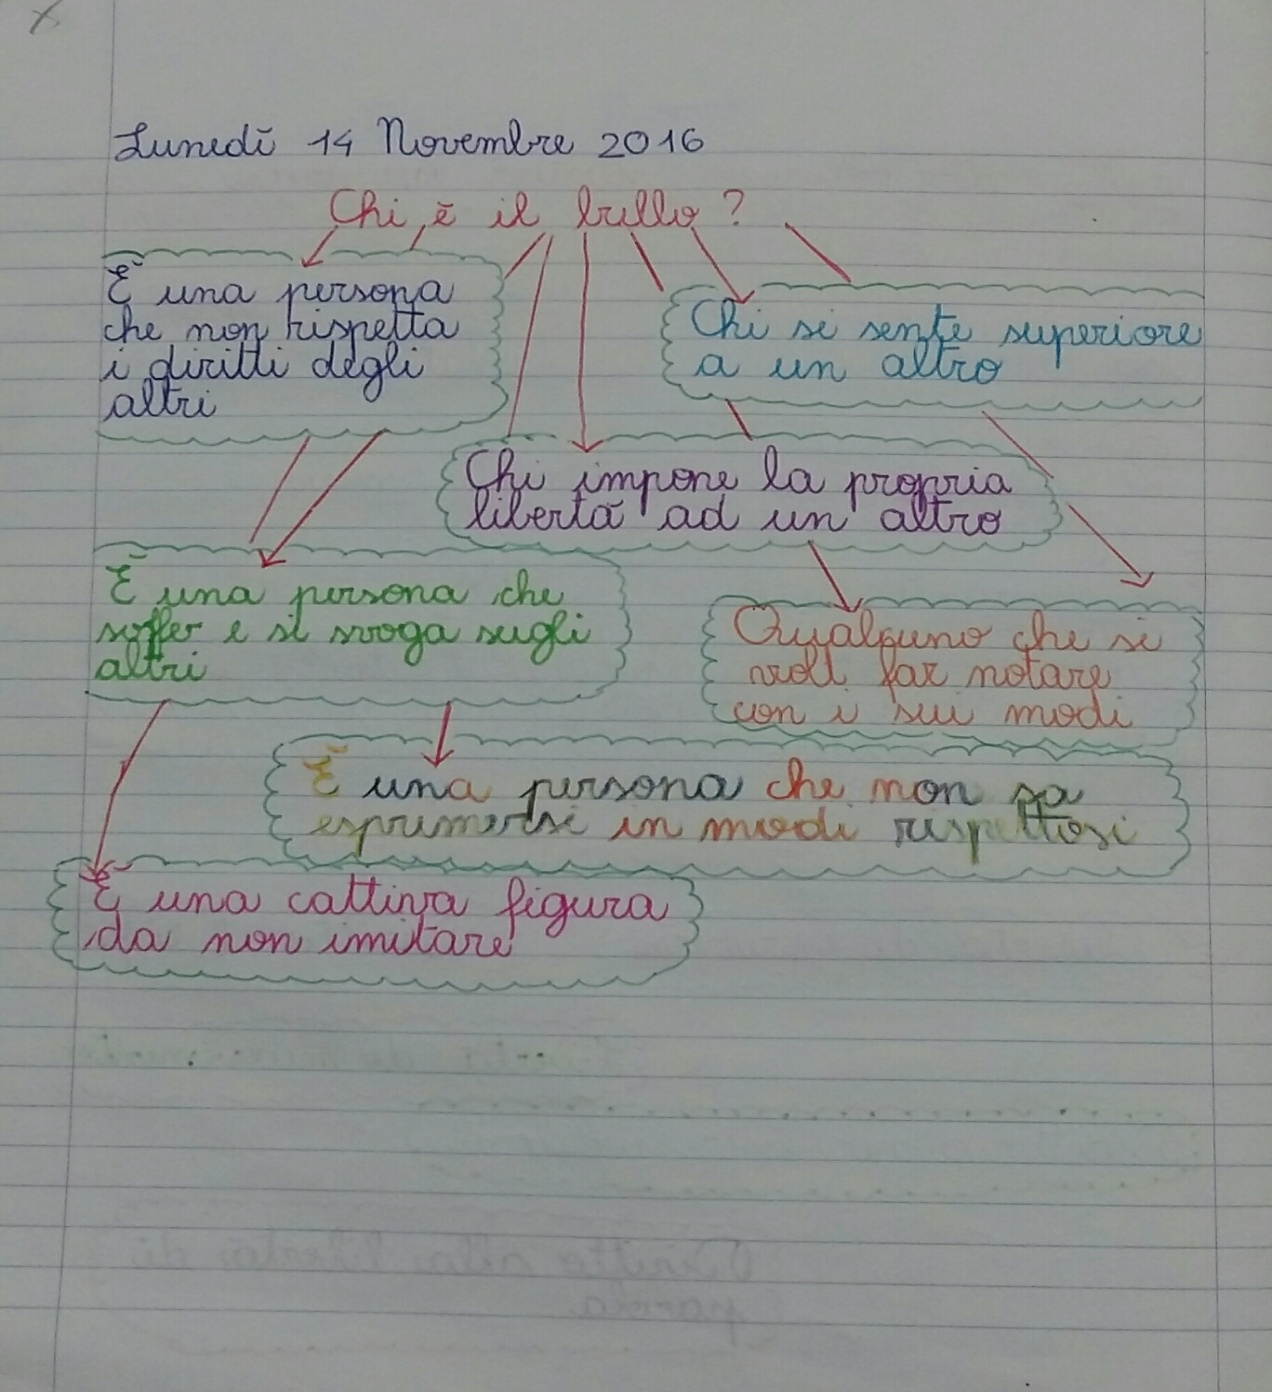 Lunedì 14 Novembre 2016
Chi è il bullo?
È una persona
che non rispetta
i diritti degli
altri
Chi si sente superiore
a un altro
Chi impone la propria
libertà ad un altro
È una persona che
soffer e si svoga sugli
altri
Qualguno che si
vroll far notare
con i sui modi
È una persona che non sa
esprimersi in modi rispettosi
È una cattiva figura
da non imitare